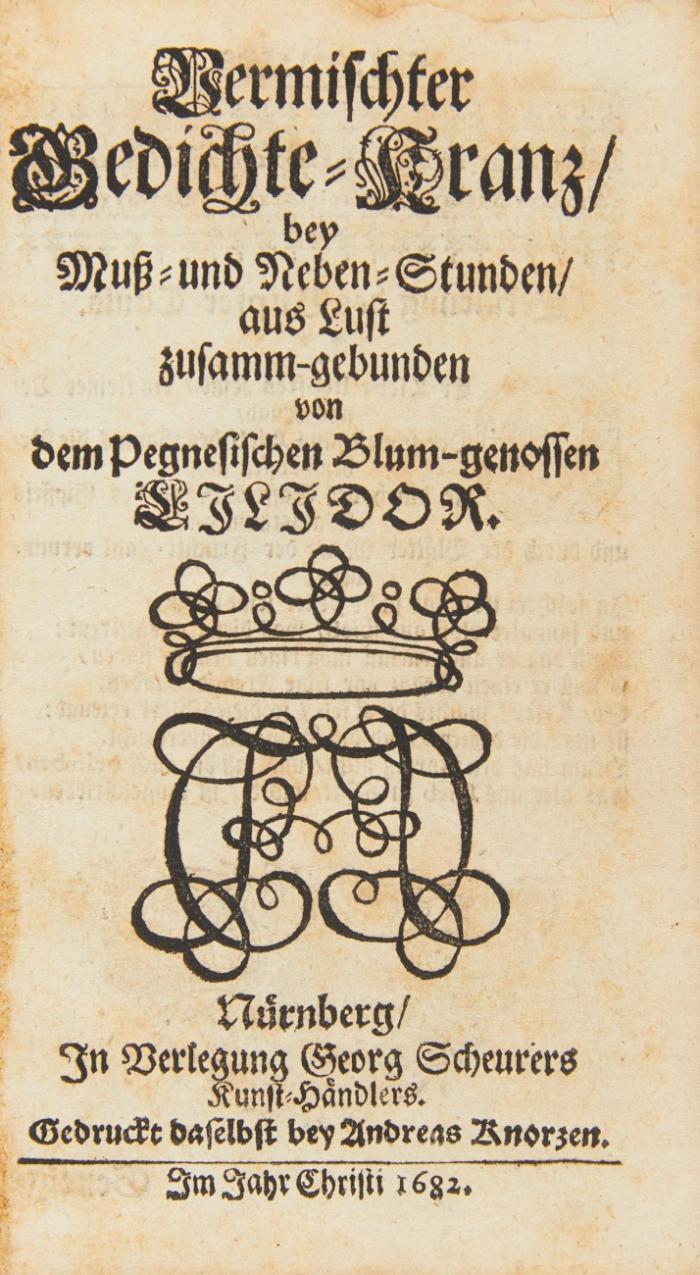 Vermiſchter
Gedichte-Kranz/
bey
Muß-und Neben-Stunden/
aus Luſt
zuſamm-gebunden
von
dem Pegneſiſchen Blum-genoſſen
LILIDOR.
Nürnberg/
In Verlegung Georg Scheurers
Kunſt-Händlers.
Gedruckt daſelbſt bey Andreas Knorzen.
Im Jahr Chriſti 1682.